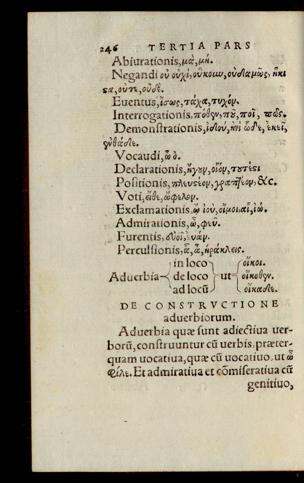 246 TERTIA PARS
Abiurationis, μὰ, μή.
Negandi οὐ οὐχὶ, οὐκουν, οὐδαμῶς, ἥκι
σα, οὔτε, οὐδὲ.
Euentus, ἴσως, τάχα, τυχόν.
Interrogationis, πόθεν, ποῦ, ποῖ, πῶς.
Demonstrationis, ἰδοὺ, ὧδε, ἐκεῖ,
ἐνθάδε.
Vocaudi, ὦ ὁ.
Declarationis, ἤγουν, οἷον, τυτέστι
Positionis, πλευστέον, γραπτέον, &c.
Voti, εἴθε, ὤφελον.
Exclamationis, ὢ ἰοὺ, οἴμοι αἲ, ἰώ.
Admirationis, ὢ, φεῦ.
Furentis, εὐοῖ, εὐάν.
Perculsionis, ἆ, ἆ, ἡράκλεις.
in loco οἴκοι.
Aduerbia de loco ut οἴκοθεν.
ad locū οἴκαδε.
DE CONSTRVCTIONE
aduerbiorum.
Aduerbia quæ sunt adiectiua uer-
borū, construuntur cū uerbis, præter-
quam uocatiua, quæ cū uocatiuo. ut ὦ
φίλε. Et admiratiua et cōmiseratiua cū
genitiuo,